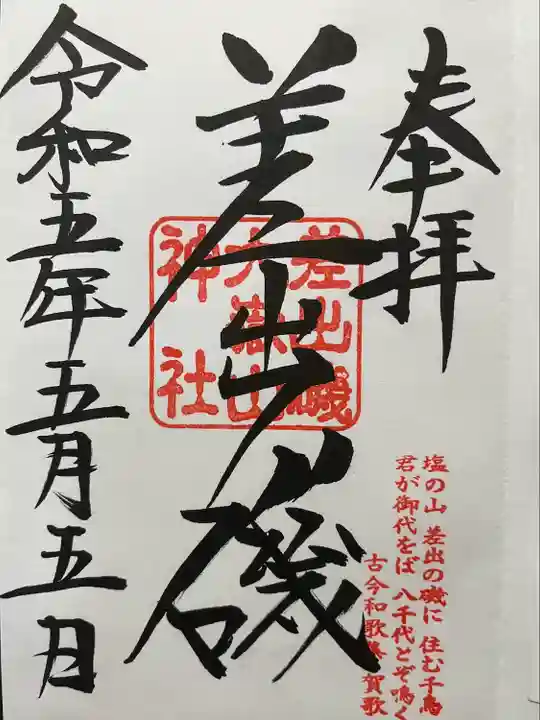 奉拝
塩の山 差出の磯に 住む千鳥
君が御代をば 八千代とぞ鳴く
古今和歌集 賀歌
差出ノ磯
差出磯
大嶽山
神社
令和五年五月五日